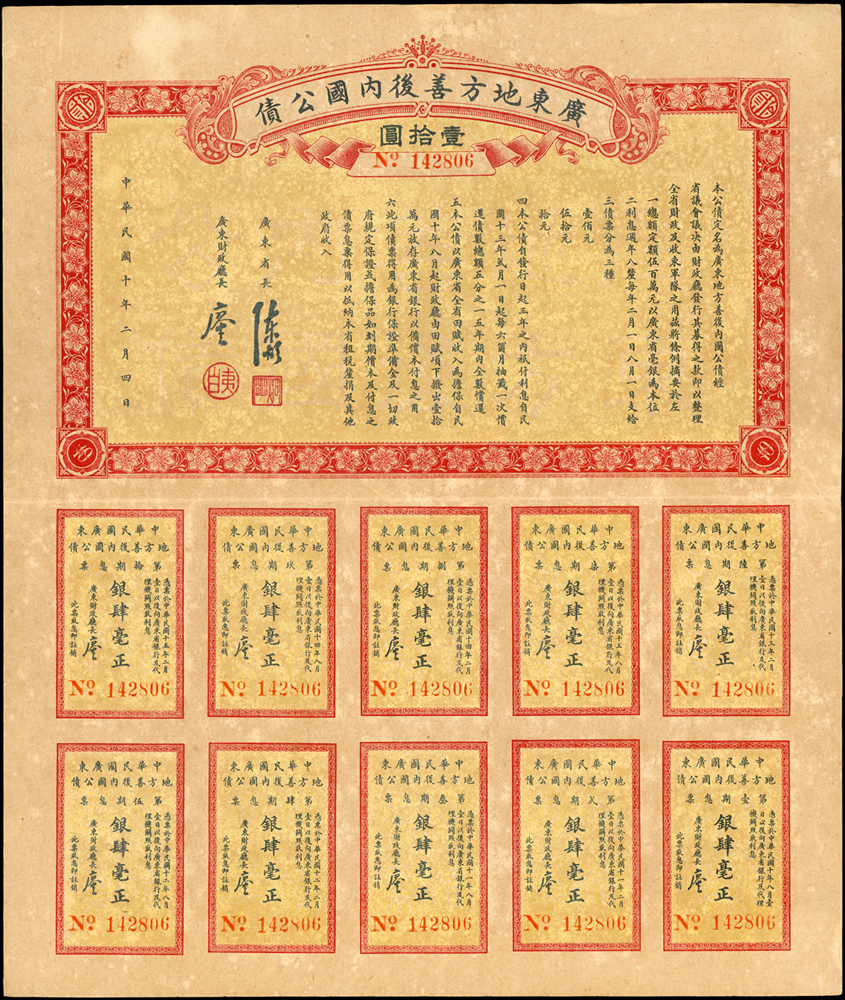 廣東地方善後內國公債
壹拾圓
No 142806
本公債定名為廣東地方善後內國公債經
省議會議决由財政廳發行其募得之款即以整理
全省財政及收束軍隊之用茲將條例摘要於左
一總額定額伍百萬元以廣東省毫銀為本位
二利息週年八釐每年二月一日八月一日支給
三債票分為三種
壹佰元
伍拾元
拾元
四本公債自發行日起三年之內祇付利息自民
國十三年弍月一日起每六箇月抽籤一次償
還債數總額五分之一五年期內全數償還
五本公債以廣東省全省田賦收入為擔保自民
國十年八月起財政廳由田賦項下撥出壹拾
萬元放存廣東省銀行以備償本付息之用
六此項債票得用為銀行保證準備金及一切政
府規定保證或擔保品如到期償本及付息之
債票息票得用以抵納本省租稅釐捐及其他
政府收入
廣東省長
廣東財政廳長
廖
中華民國十年二月四日
中華民國廣東
地方善後內國公債
第陸期息票
憑票於中華民國十三年二月
壹日以後向廣東省銀行及代
理機關照收利息
銀肆毫正
廣東財政廳長廖
此票收息即註銷
No 142806
中華民國廣東
地方善後內國公債
第柒期息票
憑票於中華民國十三年八月
壹日以後向廣東省銀行及代
理機關照收利息
銀肆毫正
廣東財政廳長廖
此票收息即註銷
No 142806
中華民國廣東
地方善後內國公債
第捌期息票
憑票於中華民國十四年二月
壹日以後向廣東省銀行及代
理機關照收利息
銀肆毫正
廣東財政廳長廖
此票收息即註銷
No 142806
中華民國廣東
地方善後內國公債
第玖期息票
憑票於中華民國十四年八月
壹日以後向廣東省銀行及代
理機關照收利息
銀肆毫正
廣東財政廳長廖
此票收息即註銷
No 142806
中華民國廣東
地方善後內國公債
第拾期息票
憑票於中華民國十五年二月
壹日以後向廣東省銀行及代
理機關照收利息
銀肆毫正
廣東財政廳長廖
此票收息即註銷
No 142806
中華民國廣東
地方善後內國公債
第壹期息票
憑票於中華民國十年八月壹
日以後向廣東省銀行及代理
機關照收利息
銀肆毫正
廣東財政廳長廖
此票收息即註銷
No 142806
中華民國廣東
地方善後內國公債
第弍期息票
憑票於中華民國十一年二月
壹日以後向廣東省銀行及代
理機關照收利息
銀肆毫正
廣東財政廳長廖
此票收息即註銷
No 142806
中華民國廣東
地方善後內國公債
第叁期息票
憑票於中華民國十一年八月
壹日以後向廣東省銀行及代
理機關照收利息
銀肆毫正
廣東財政廳長廖
此票收息即註銷
No 142806
中華民國廣東
地方善後內國公債
第肆期息票
憑票於中華民國十二年二月
壹日以後向廣東省銀行及代
理機關照收利息
銀肆毫正
廣東財政廳長廖
此票收息即註銷
No 142806
中華民國廣東
地方善後內國公債
第伍期息票
憑票於中華民國十二年八月
壹日以後向廣東省銀行及代
理機關照收利息
銀肆毫正
廣東財政廳長廖
此票收息即註銷
No 142806